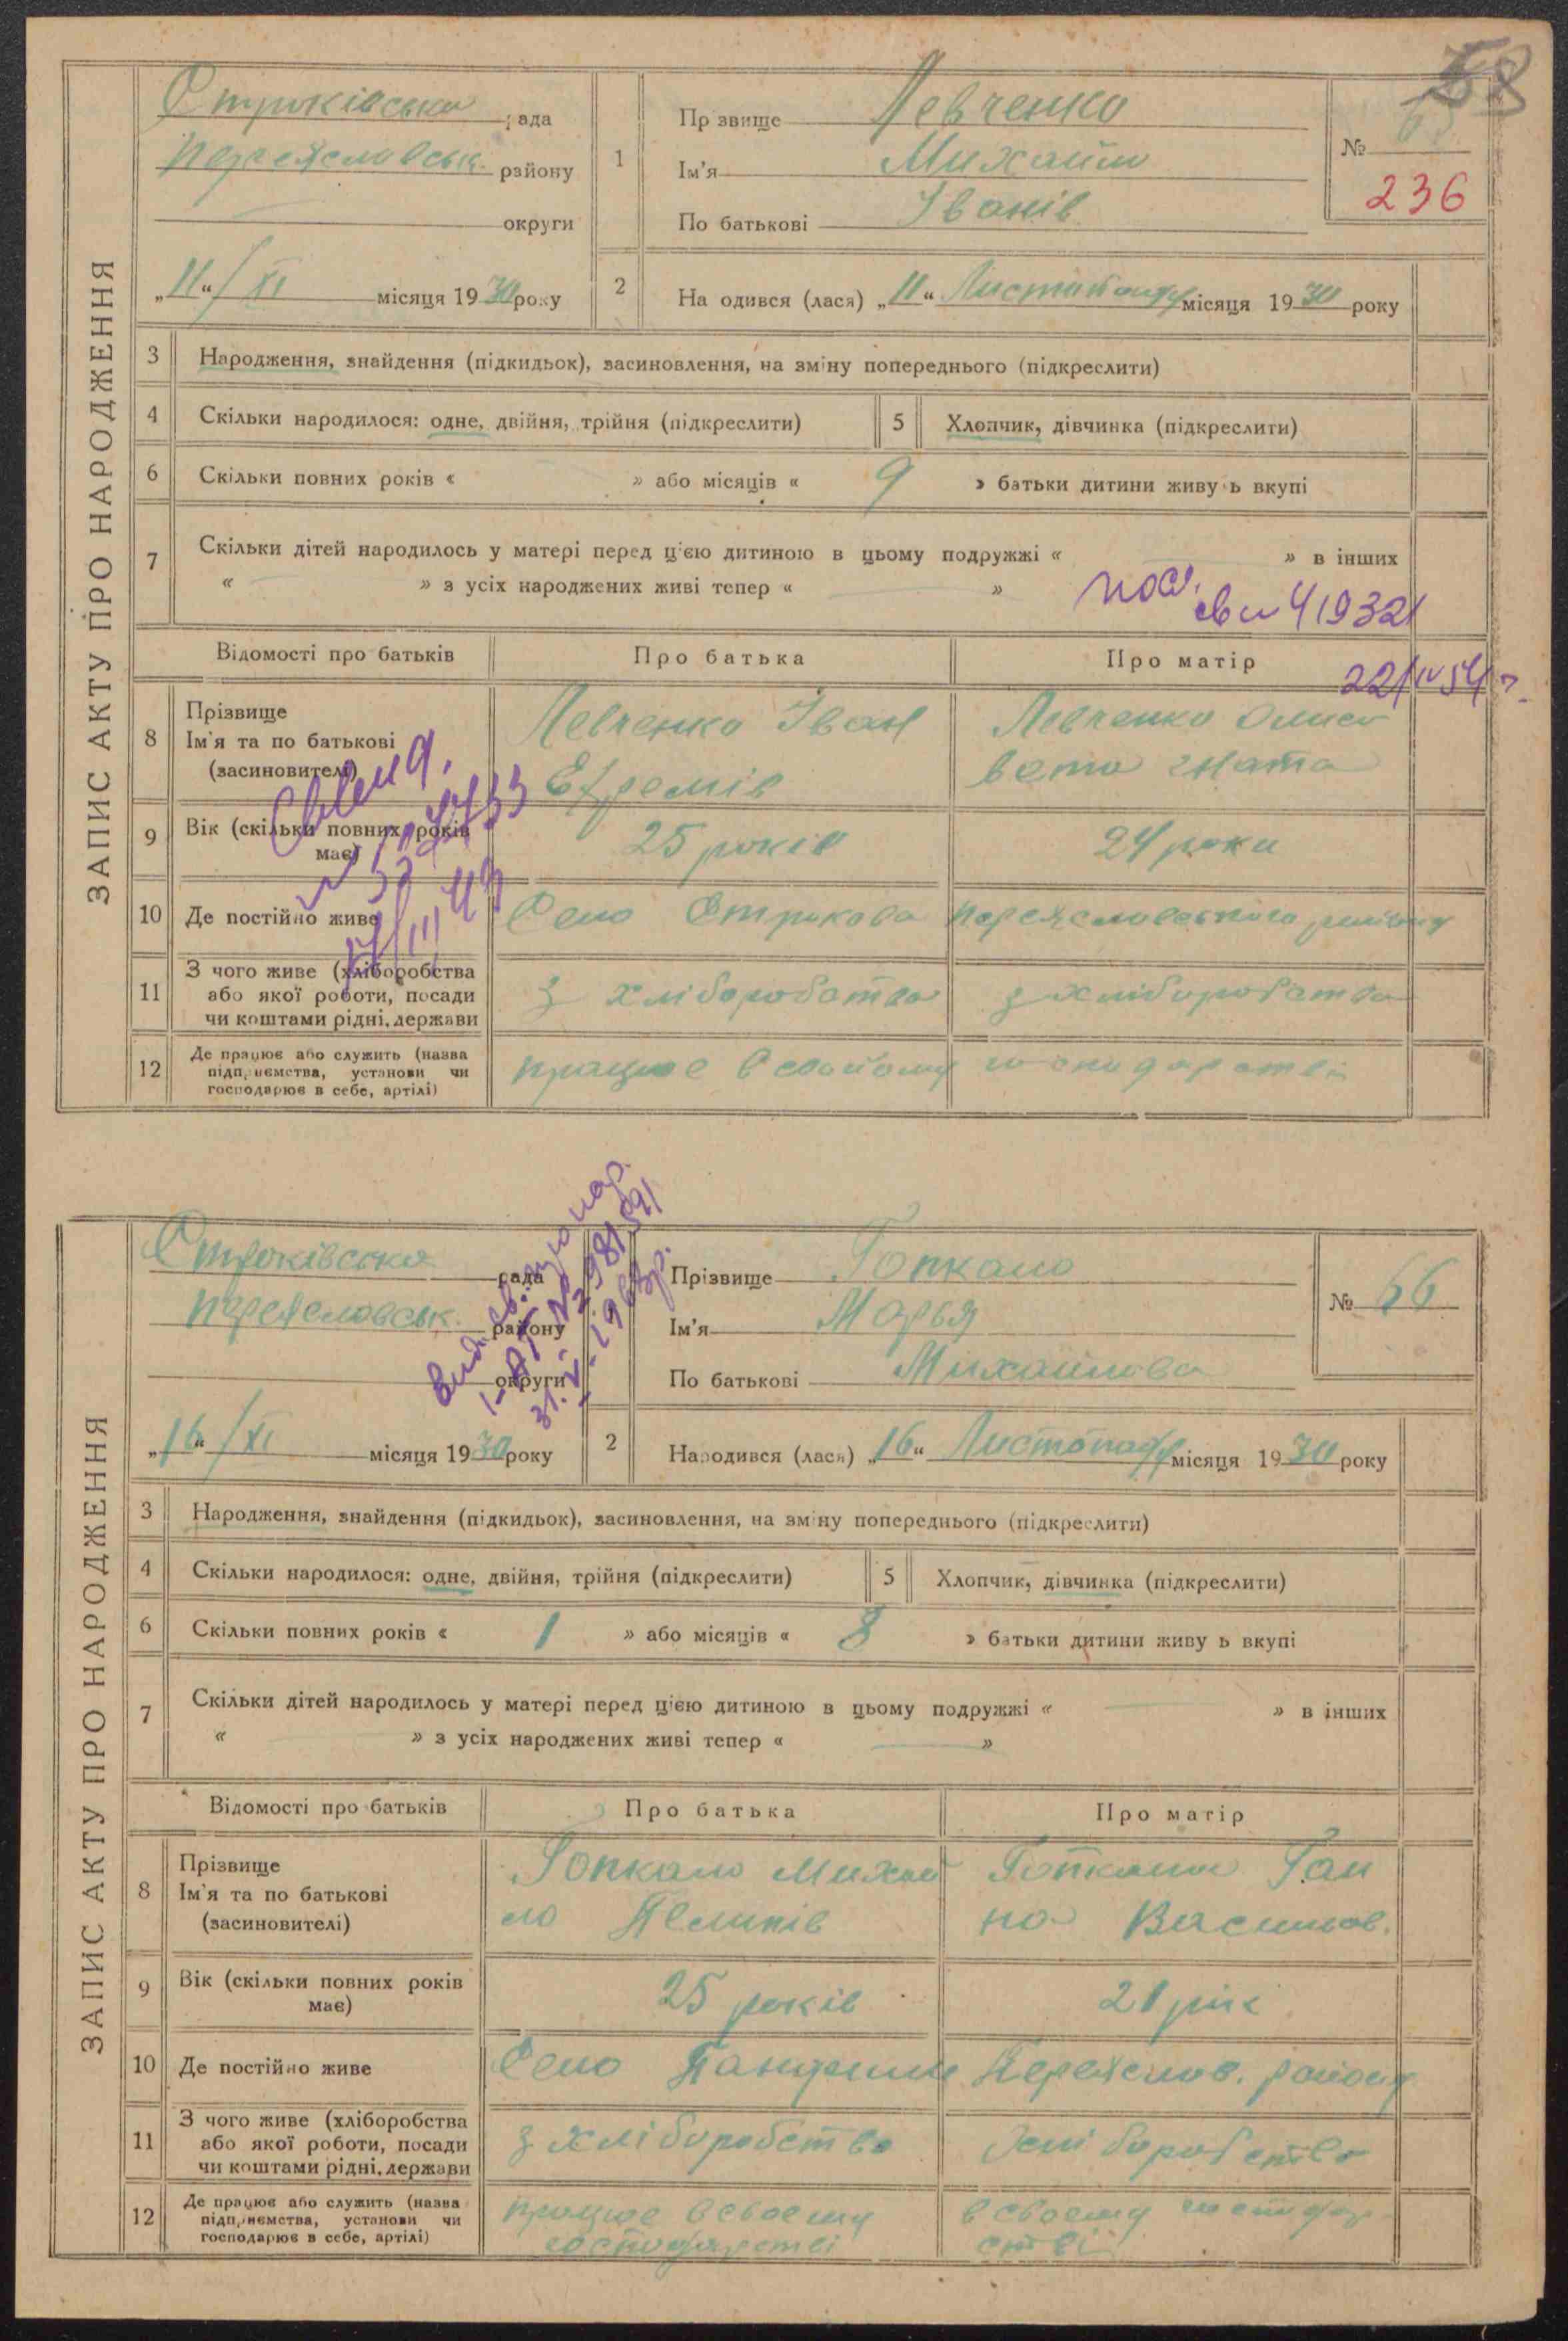 58
ЗАПИС АКТУ ПРО НАРОДЖЕННЯ
Строківська рада
Переяславськ. району
округи
„11“ / XI місяця 1930 року
1
Прізвище Левченко
Ім'я Михайло
По батькові Іванів
№ 65
236
2 Народився (лася) „11“ Листопаду місяця 1930 року
3 Народження, знайдення (підкидьок), засиновлення, на зміну попереднього (підкреслити)
4 Скільки народилося: одне, двійня, трійня (підкреслити)
5 Хлопчик, дівчинка (підкреслити)
6 Скільки повних років « » або місяців « 9 » батьки дитини живуть вкупі
7 Скільки дітей народилось у матері перед цією дитиною в цьому подружжі « » в інших
« » з усіх народжених живі тепер « »
419321
22/IV 54 г.
Відомості про батьків
Про батька
Про матір
8 Прізвище
Ім'я та по батькові
(засновителі)
Левченко Іван
Ефремів
Левченко Олиса
вета Гната
9 Вік (скільки повних років
має)
25 років
24 роки
10 Де постійно живе
Село Строкова Переяславського району
11 З чого живе (хліборобства
або якої роботи, посади
чи коштами рідні, держави
з хліборобства
з хліборобства
12 Де працює або служить (назва
підприємства, установи чи
господарює в себе, артілі)
працює в свойому господарстві
ЗАПИС АКТУ ПРО НАРОДЖЕННЯ
Строківська рада
Переяславськ. району
округи
„16“ / XI місяця 1930 року
Прізвище Гопкало
Ім'я Марья
По батькові Михайлова
№ 66
2 Народився (лася) „16“ Листопаду місяця 1930 року
3 Народження, знайдення (підкидьок), засиновлення, на зміну попереднього (підкреслити)
4 Скільки народилося: одне, двійня, трійня (підкреслити)
5 Хлопчик, дівчинка (підкреслити)
6 Скільки повних років « 1 » або місяців « 8 » батьки дитини живуть вкупі
7 Скільки дітей народилось у матері перед цією дитиною в цьому подружжі « » в інших
« » з усіх народжених живі тепер « »
Відомості про батьків
Про батька
Про матір
8 Прізвище
Ім'я та по батькові
(засиновителі)
Гопкало Михай
ло Пелипів
Гопкало Ган
на Васильов.
9 Вік (скільки повних років
має)
25 років
21 рік
10 Де постійно живе
Село Переяслов. району
11 З чого живе (хліборобства
або якої роботи, посади
чи коштами рідні, держави
з хліборобства
хліборобство
12 Де працює або служить (назва
підприємства, установи чи
господарює в себе, артілі)
працює в своєму
господарстві
в своєму господар
стві